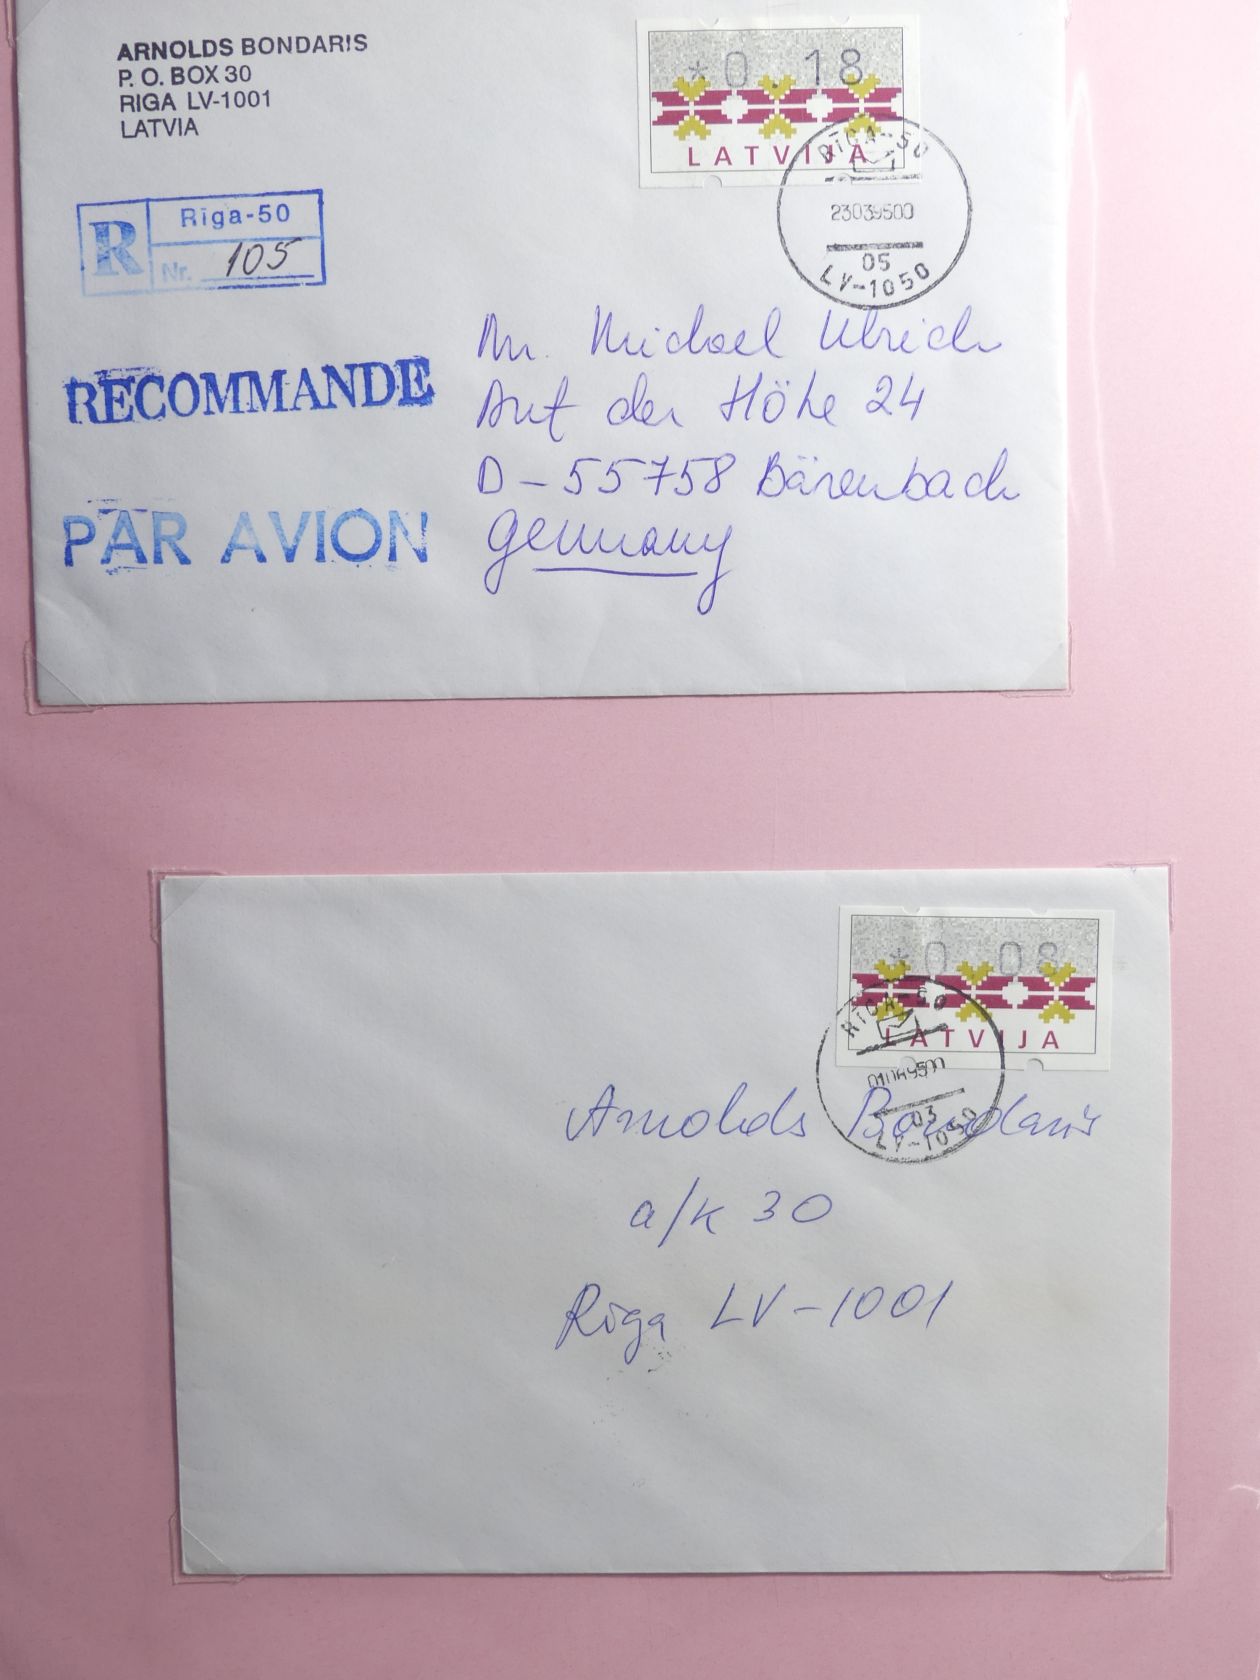 ARNOLDS BONDARIS
P. O. BOX 30
RIGA LV-1001
LATVIA
*0.18
LATVIJA
RĪGA-50
23039500
05
LV-1050
R Rīga-50
Nr. 105
RECOMMANDE
PAR AVION
Michael Ulrich
Auf der Höhe 24
D-55758 Bärenbach
Germany
*0.08
LATVIJA
RĪGA-50
03
LV-1050
Arnolds Bondaris
a/k 30
Rīga LV-1001